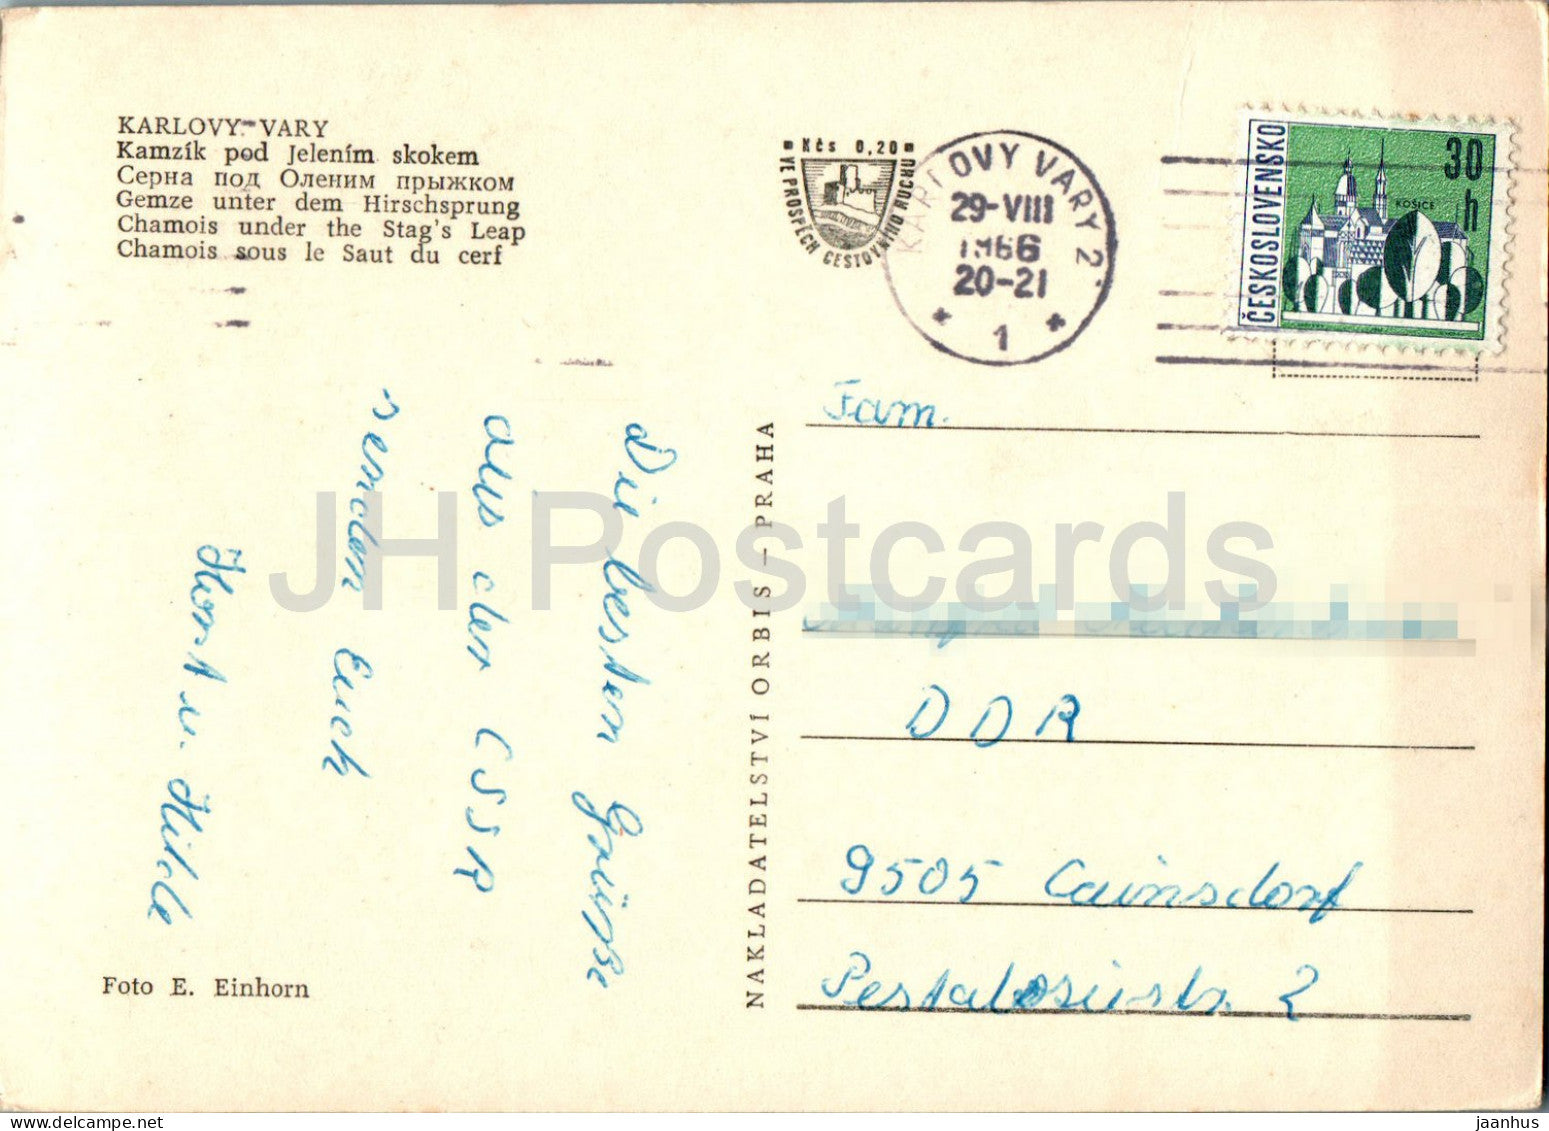 KARLOVY VARY
Kamzík pod Jelením skokem
Серна под Олениm прыжком
Gemze unter dem Hirschsprung
Chamois under the Stag's Leap
Chamois sous le Saut du cerf
Kčs 0,20
VE PROSPĚCH CESTOVNÍHO RUCHU
KARLOVY VARY 2
29-VIII
1966
20-21
1
ČESKOSLOVENSKO
30 h
KOŠICE
Die besten Grüße
aus der CSSR
senden Euch
Horst u. Hilde
NAKLADATELSTVÍ ORBIS — PRAHA
Fam.
DDR
9505 Cainsdorf
Pestalozzistr. 2
Foto E. Einhorn
JH Postcards
jaanhus